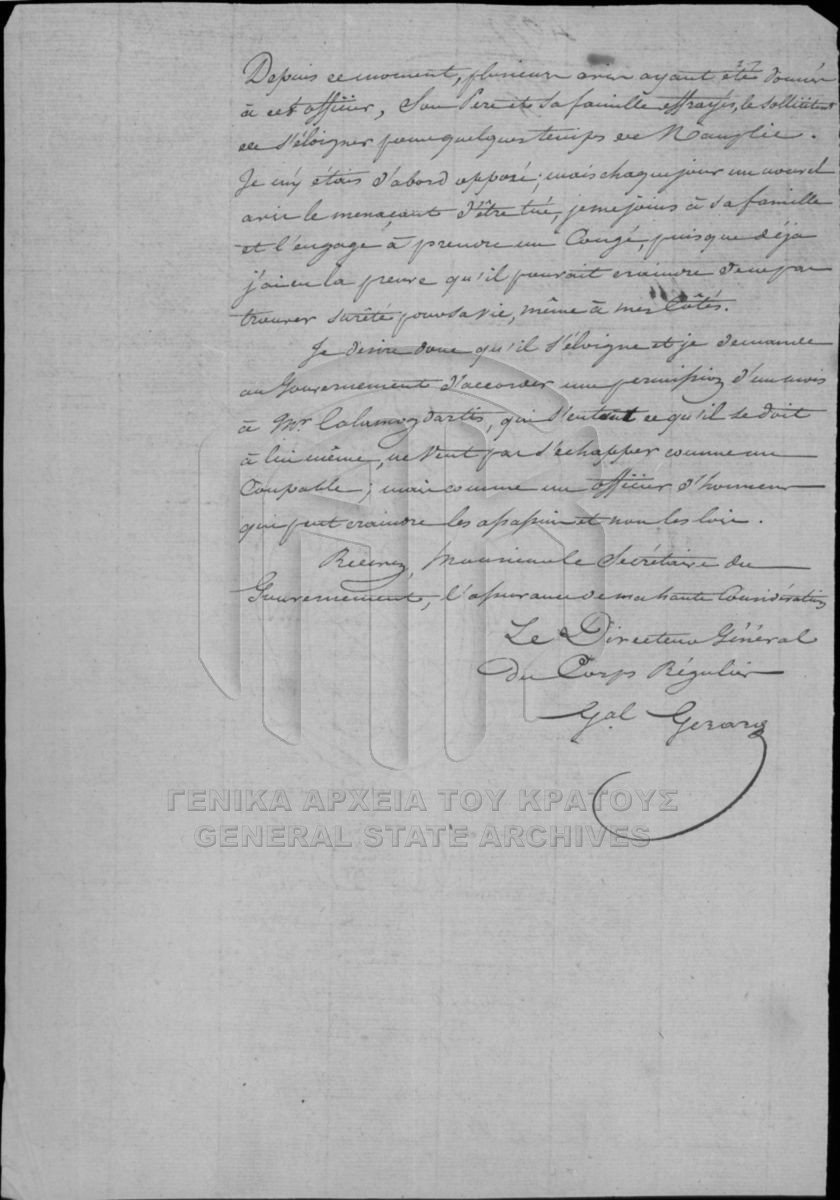 Depuis ce moment, plusieurs avis ayant été donnés
à cet officier, Son Pere et sa famille effrayés, le sollicitent
de s'éloigner pour quelques temps de Nauplie.
Je m'y étois d'abord opposé; mais chaque jour un nouvel
avis le menaçant d'être tué, je me joins à sa famille
et l'engage à prendre un Congé, puisque déja
j'ai eu la preuve qu'il pouvait craindre de ne pas
trouver sureté pour sa vie, même à mes Côtés.
Je désire donc qu'il s'éloigne et je demande
au Gouvernement d'accorder une permission d'un mois
à Mr. Calamogdartis, qui sentant ce qu'il se doit
à lui même, ne veut pas s'échapper comme un
Coupable; mais comme un officier d'honneur
qui peut craindre les assassins et non les lois.
Recevez, Monsieur le Secrétaire du
Gouvernement, l'assurance de ma haute Considération
Le Directeur Général
du Corps Régulier
Gal Gerard
ΓΕΝΙΚΑ ΑΡΧΕΙΑ ΤΟΥ ΚΡΑΤΟΥΣ
GENERAL STATE ARCHIVES